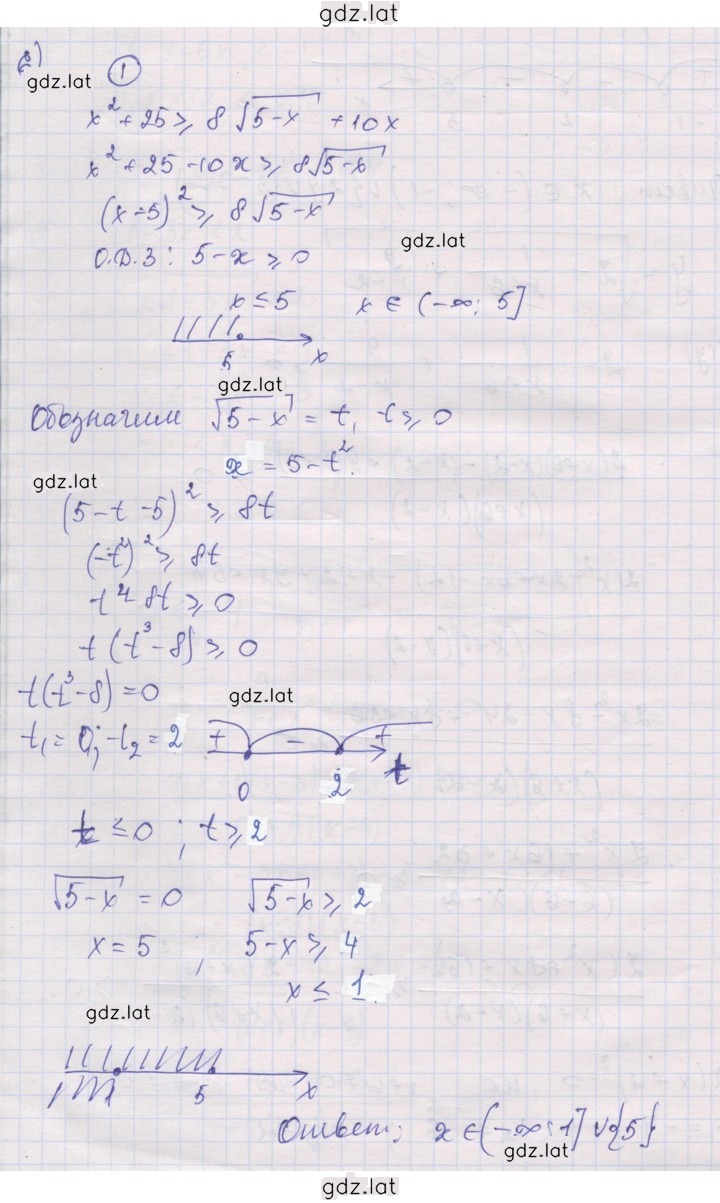 gdz.lat
2)
gdz.lat
1
x² + 25 ≥ 8√(5-x) + 10x
x² + 25 - 10x ≥ 8√(5-x)
(x-5)² ≥ 8√(5-x)
gdz.lat
О.Д.З: 5-x ≥ 0
x ≤ 5 x ∈ (-∞; 5]
5 x
gdz.lat
Обозначим √(5-x) = t, t ≥ 0
x = 5-t².
gdz.lat
(5-t-5)² ≥ 8t
(-t²)² ≥ 8t
t⁴-8t ≥ 0
t(t³-8) ≥ 0
t(t³-8) = 0
gdz.lat
t₁ = 0; t₂ = 2 + - +
0 2 t
t ≤ 0 ; t ≥ 2
√(5-x) = 0 √(5-x) ≥ 2
x = 5 ; 5-x ≥ 4
x ≤ 1.
gdz.lat
1 5 x
Ответ: x ∈ (-∞; 1] ∪ {5}
gdz.lat
gdz.lat